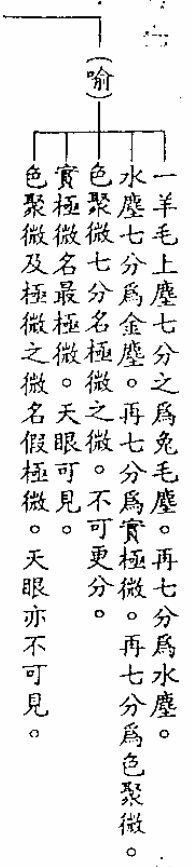 （喻）
一羊毛上塵七分之爲兔毛塵。再七分爲水塵。
水塵七分爲金塵。再七分爲實極微。再七分爲色聚微。
色聚微七分名極微之微。不可更分。
實極微名最極微。天眼可見。
色聚微及極微之微名假極微。天眼亦不可見。